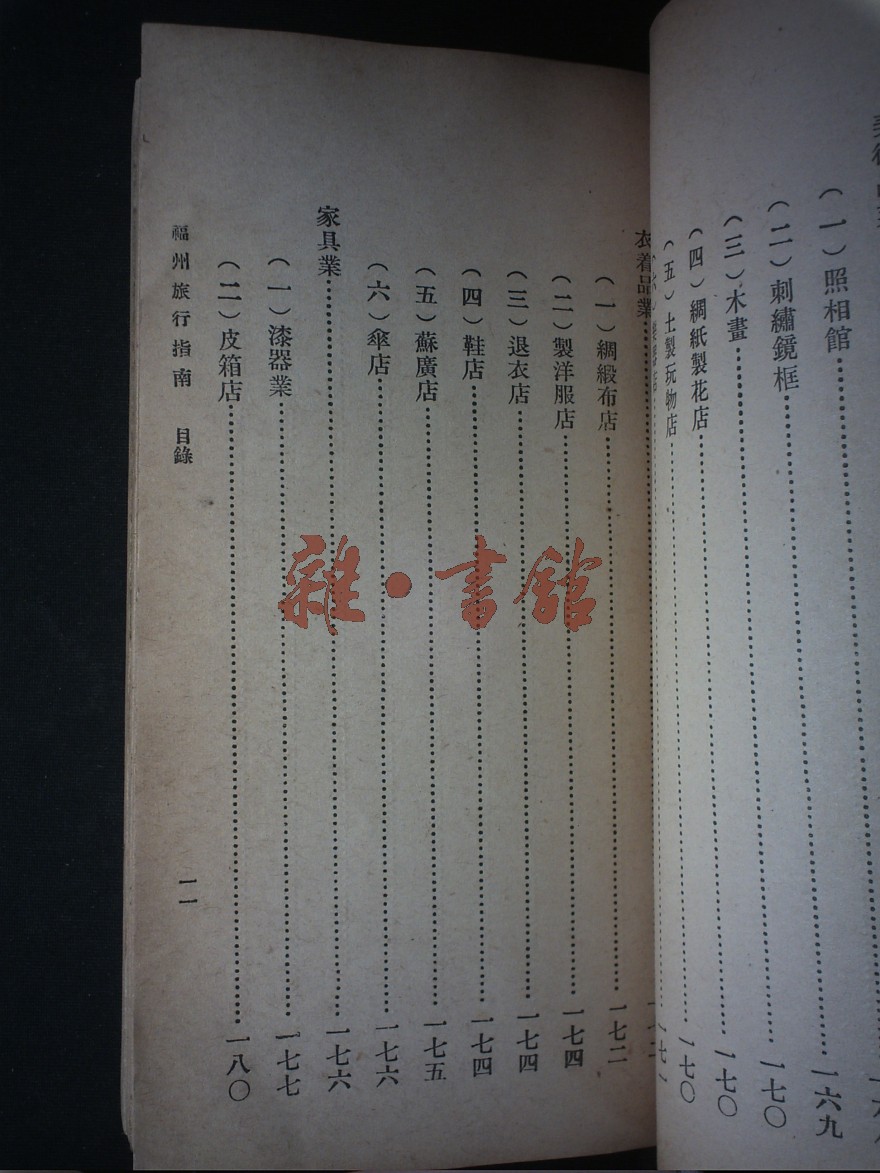 （一）照相館…一六九
（二）刺繡鏡框…一七〇
（三）木畫…一七〇
（四）綢紙製花店…一七〇
（五）土製玩物店
衣着品業
（一）綢緞布店…一七二
（二）製洋服店…一七四
（三）退衣店…一七四
（四）鞋店…一七四
（五）蘇廣店…一七五
（六）傘店…一七六
家具業…一七六
（一）漆器業…一七七
（二）皮箱店…一八〇
福州旅行指南 目錄
一一
雜·書館